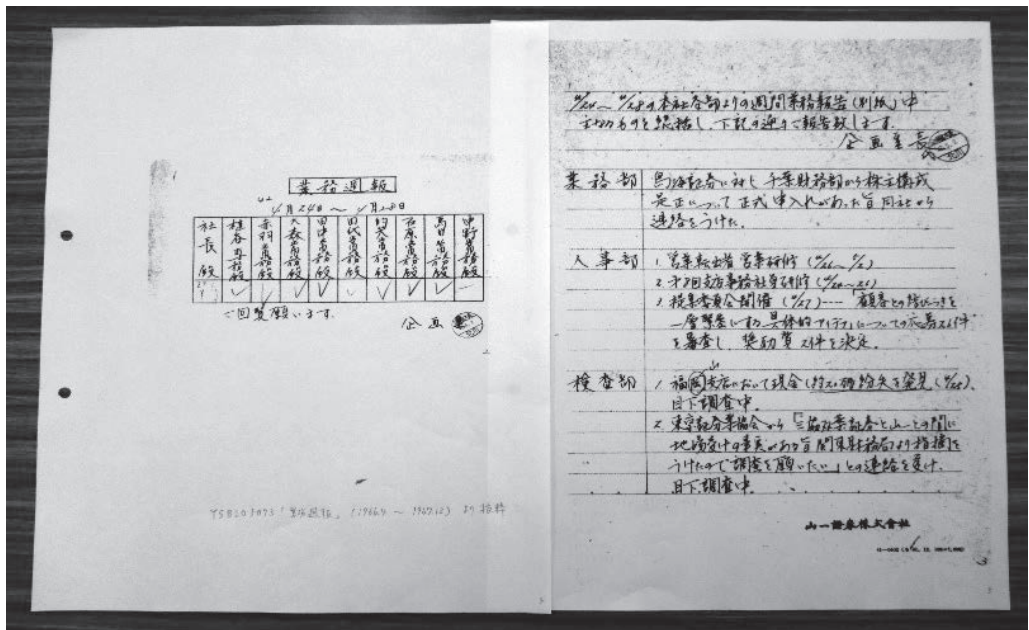 業務週報
42
4月24日～4月28日
社長殿
植谷専務殿
赤羽常務殿
大森常務殿
田中常務殿
田代常務殿
的矢常務殿
石原常務殿
高田常務殿
中野常務殿
ご回覧願います。
企画室
YSB203073「業務週報」(1966.9～1967.12)より抜粋
4/24～4/28の本社各部よりの週間業務報告(別紙)中
主なものを総括し、下記の通りご報告致します。
企画室長
業務部
に対し千葉財務部から株主構成
是正について正式申入れがあった旨同社から
連絡をうけた。
人事部
1. 営業転出者営業研修
2. 才2回支店事務社員研修
3. 提案委員会開催(4/27)……「顧客との結びつきを
一層緊密にする具体的アイディア」についての応募
を審査し、奨励賞2件を決定。
検査部
1. 福岡支店において現金
紛失を発見(4/25)、
目下調査中。
2. 東京証券業協会から
証券と山一との間に
地場受けの事実がある旨関東財務局より指摘を
うけたので調査を願いたい」との連絡を受け、
目下調査中。
山一證券株式会社
3